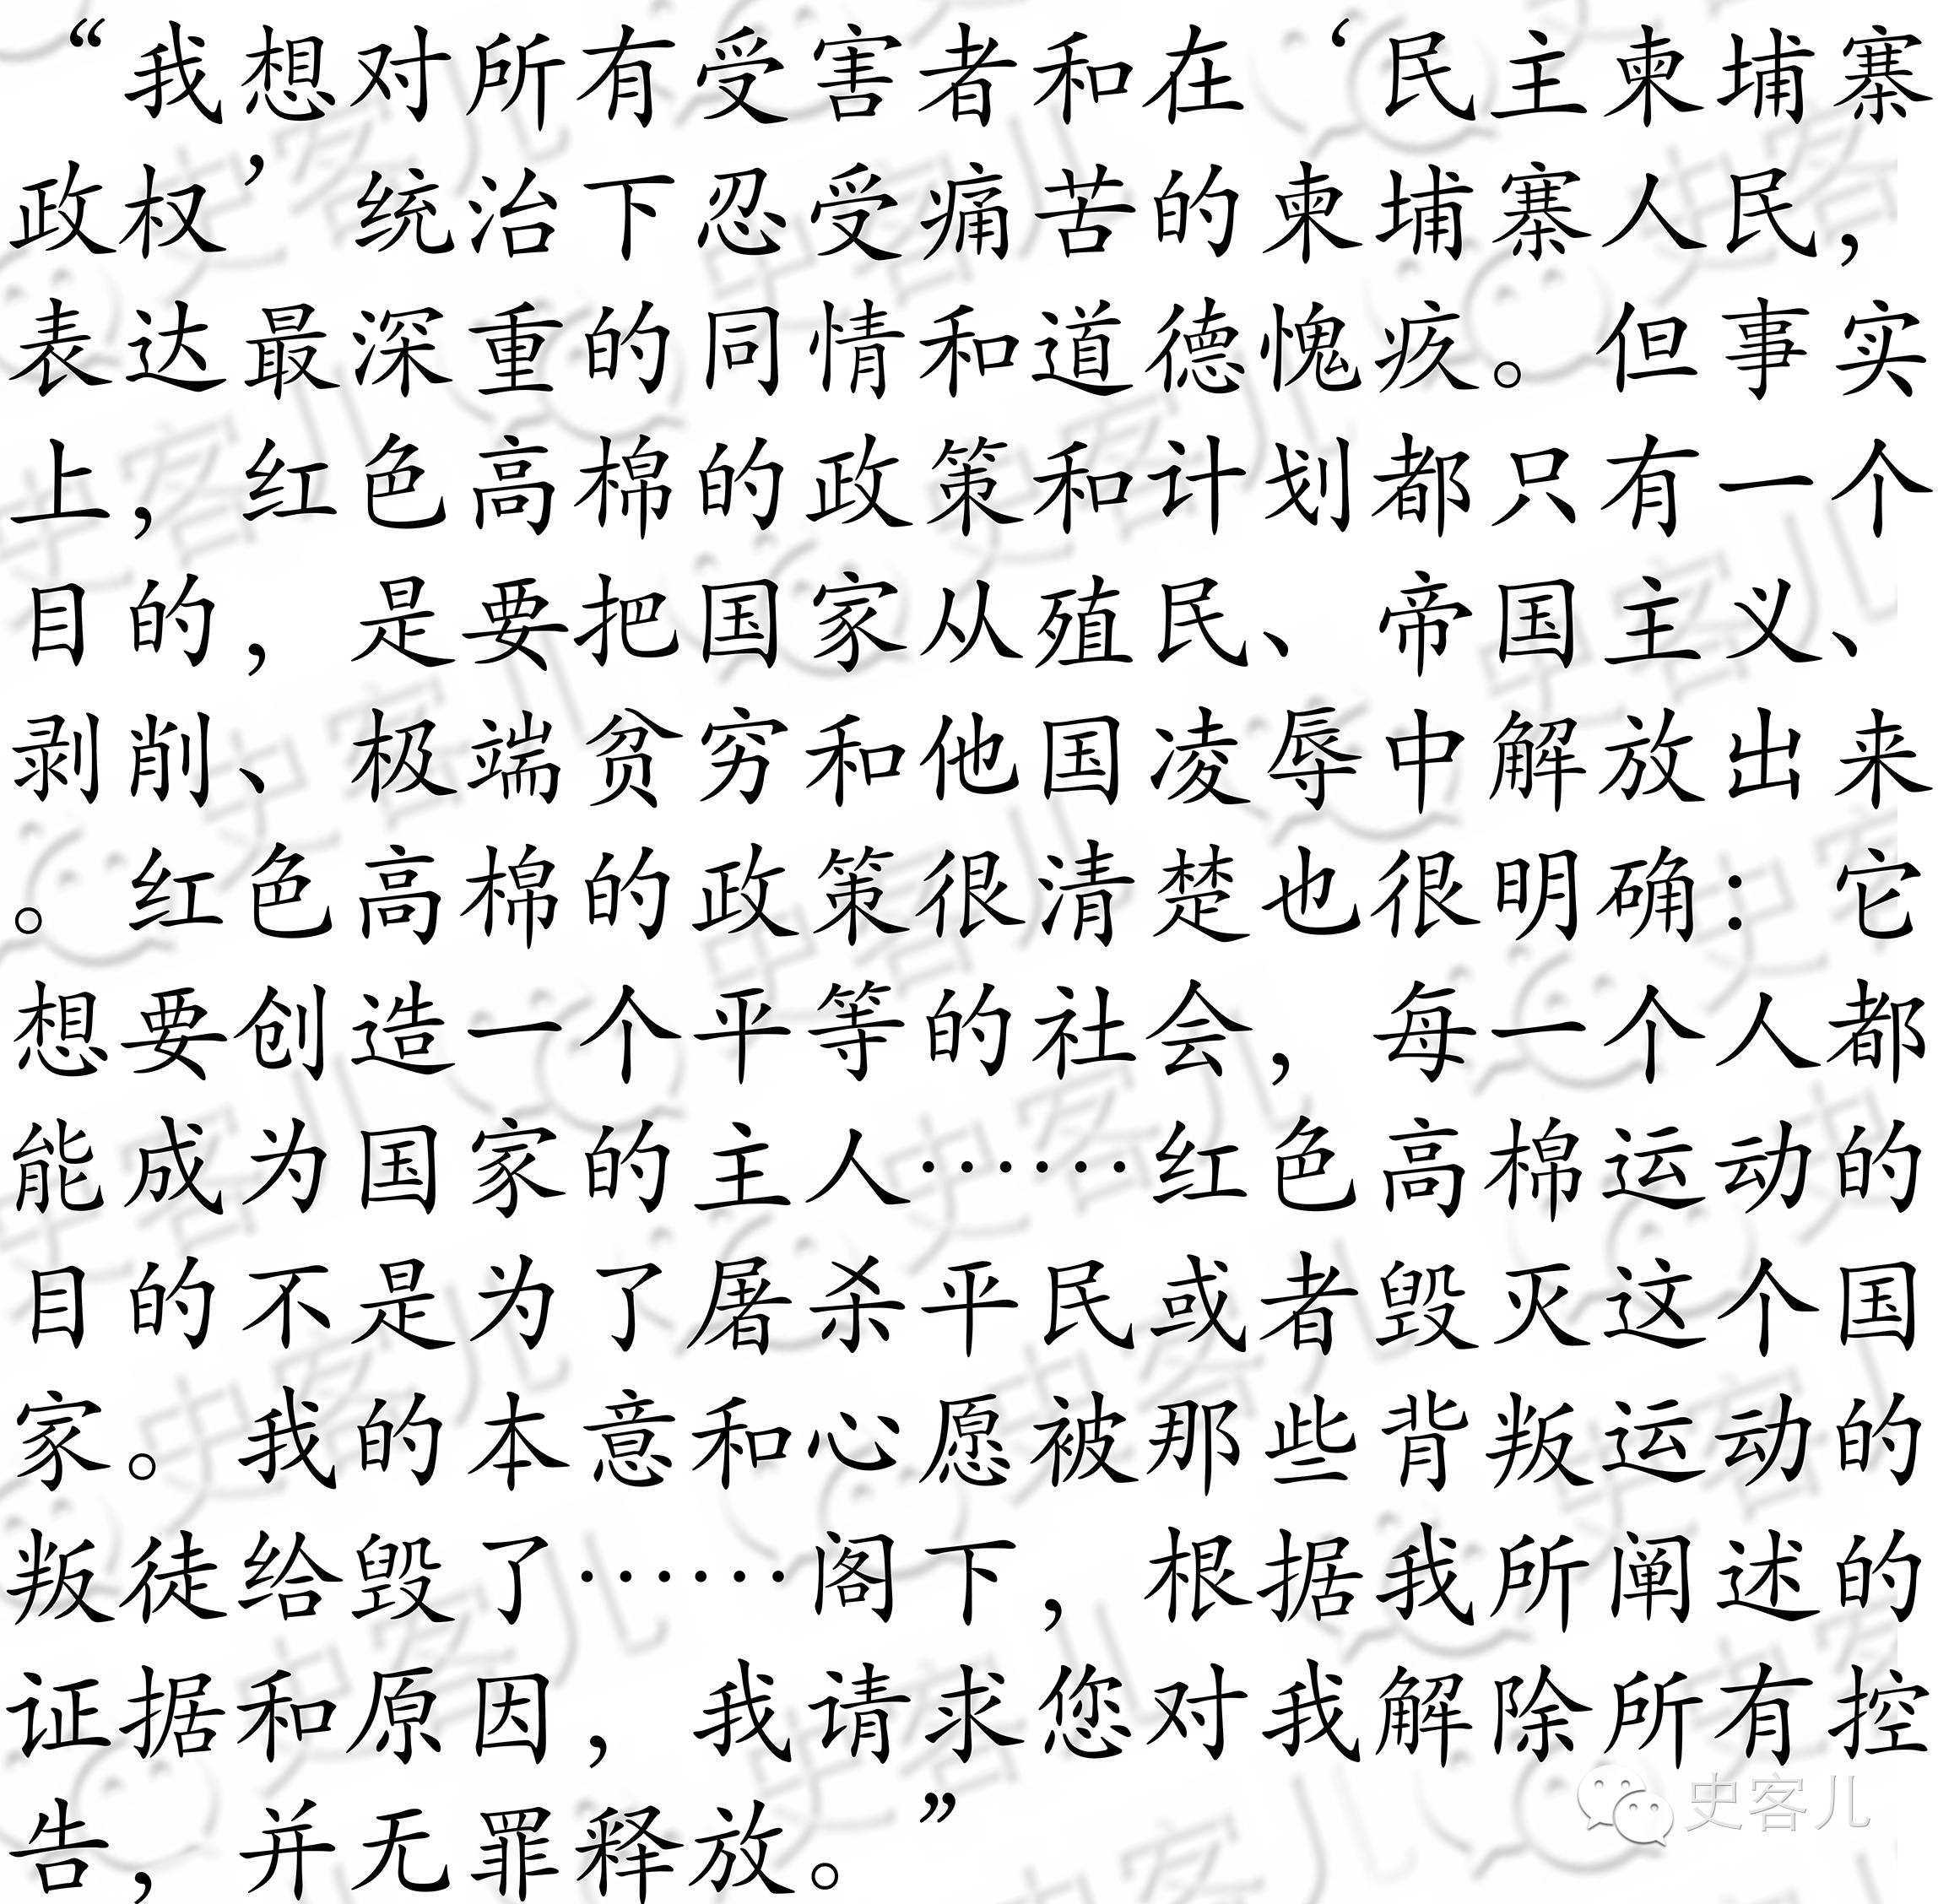 “我想对所有受害者和在‘民主柬埔寨
政权’统治下忍受痛苦的柬埔寨人民，
表达最深重的同情和道德愧疚。但事实
上，红色高棉的政策和计划都只有一个
目的，是要把国家从殖民、帝国主义、
剥削、极端贫穷和他国凌辱中解放出来
。红色高棉的政策很清楚也很明确：它
想要创造一个平等的社会，每一个人都
能成为国家的主人……红色高棉运动的
目的不是为了屠杀平民或者毁灭这个国
家。我的本意和心愿被那些背叛运动的
叛徒给毁了……阁下，根据我所阐述的
证据和原因，我请求您对我解除所有控
告，并无罪释放。”
史客儿